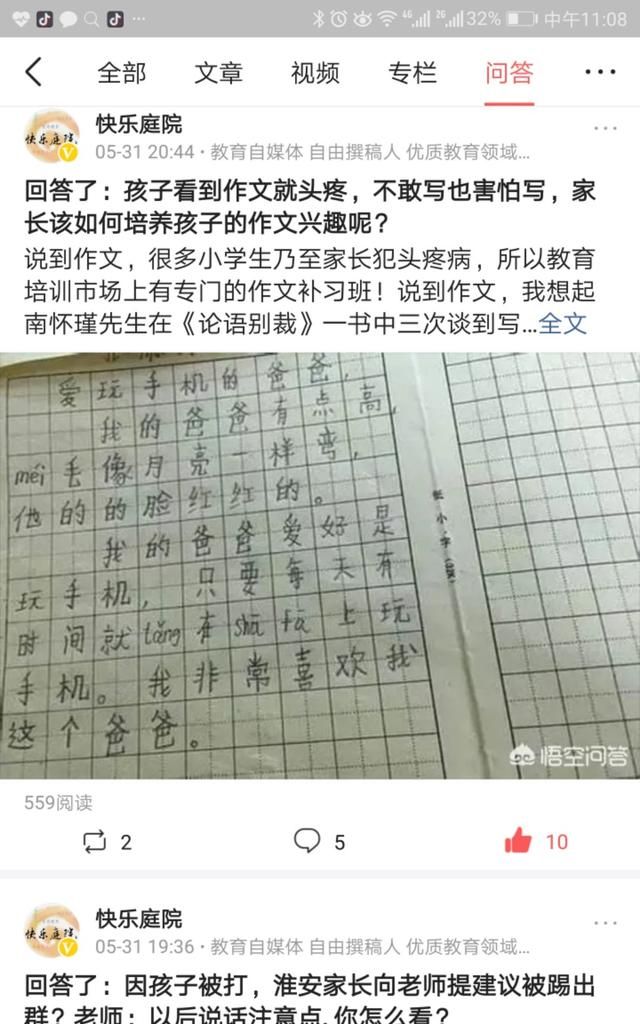 32% 中午11:08
全部 文章 视频 专栏 问答
快乐庭院
05-31 20:44 · 教育自媒体 自由撰稿人 优质教育领域...
回答了：孩子看到作文就头疼，不敢写也害怕写，家
长该如何培养孩子的作文兴趣呢？
说到作文，很多小学生乃至家长犯头疼病，所以教育
培训市场上有专门的作文补习班！说到作文，我想起
南怀瑾先生在《论语别裁》一书中三次谈到写...全文
爱玩手机的爸爸，
我的爸爸有点高，
méi毛像月亮一样弯，
他的的脸红红的。
我的爸爸爱好是
玩手机，只要每天有
时间就tǎng在shā fā上玩
手机。我非常喜欢我
这个爸爸。
悟空问答
559阅读
2 5 10
快乐庭院
05-31 19:36 · 教育自媒体 自由撰稿人 优质教育领域...
回答了：因孩子被打，淮安家长向老师提建议被踢出
群？老师：以后说话注意点,你怎么看？